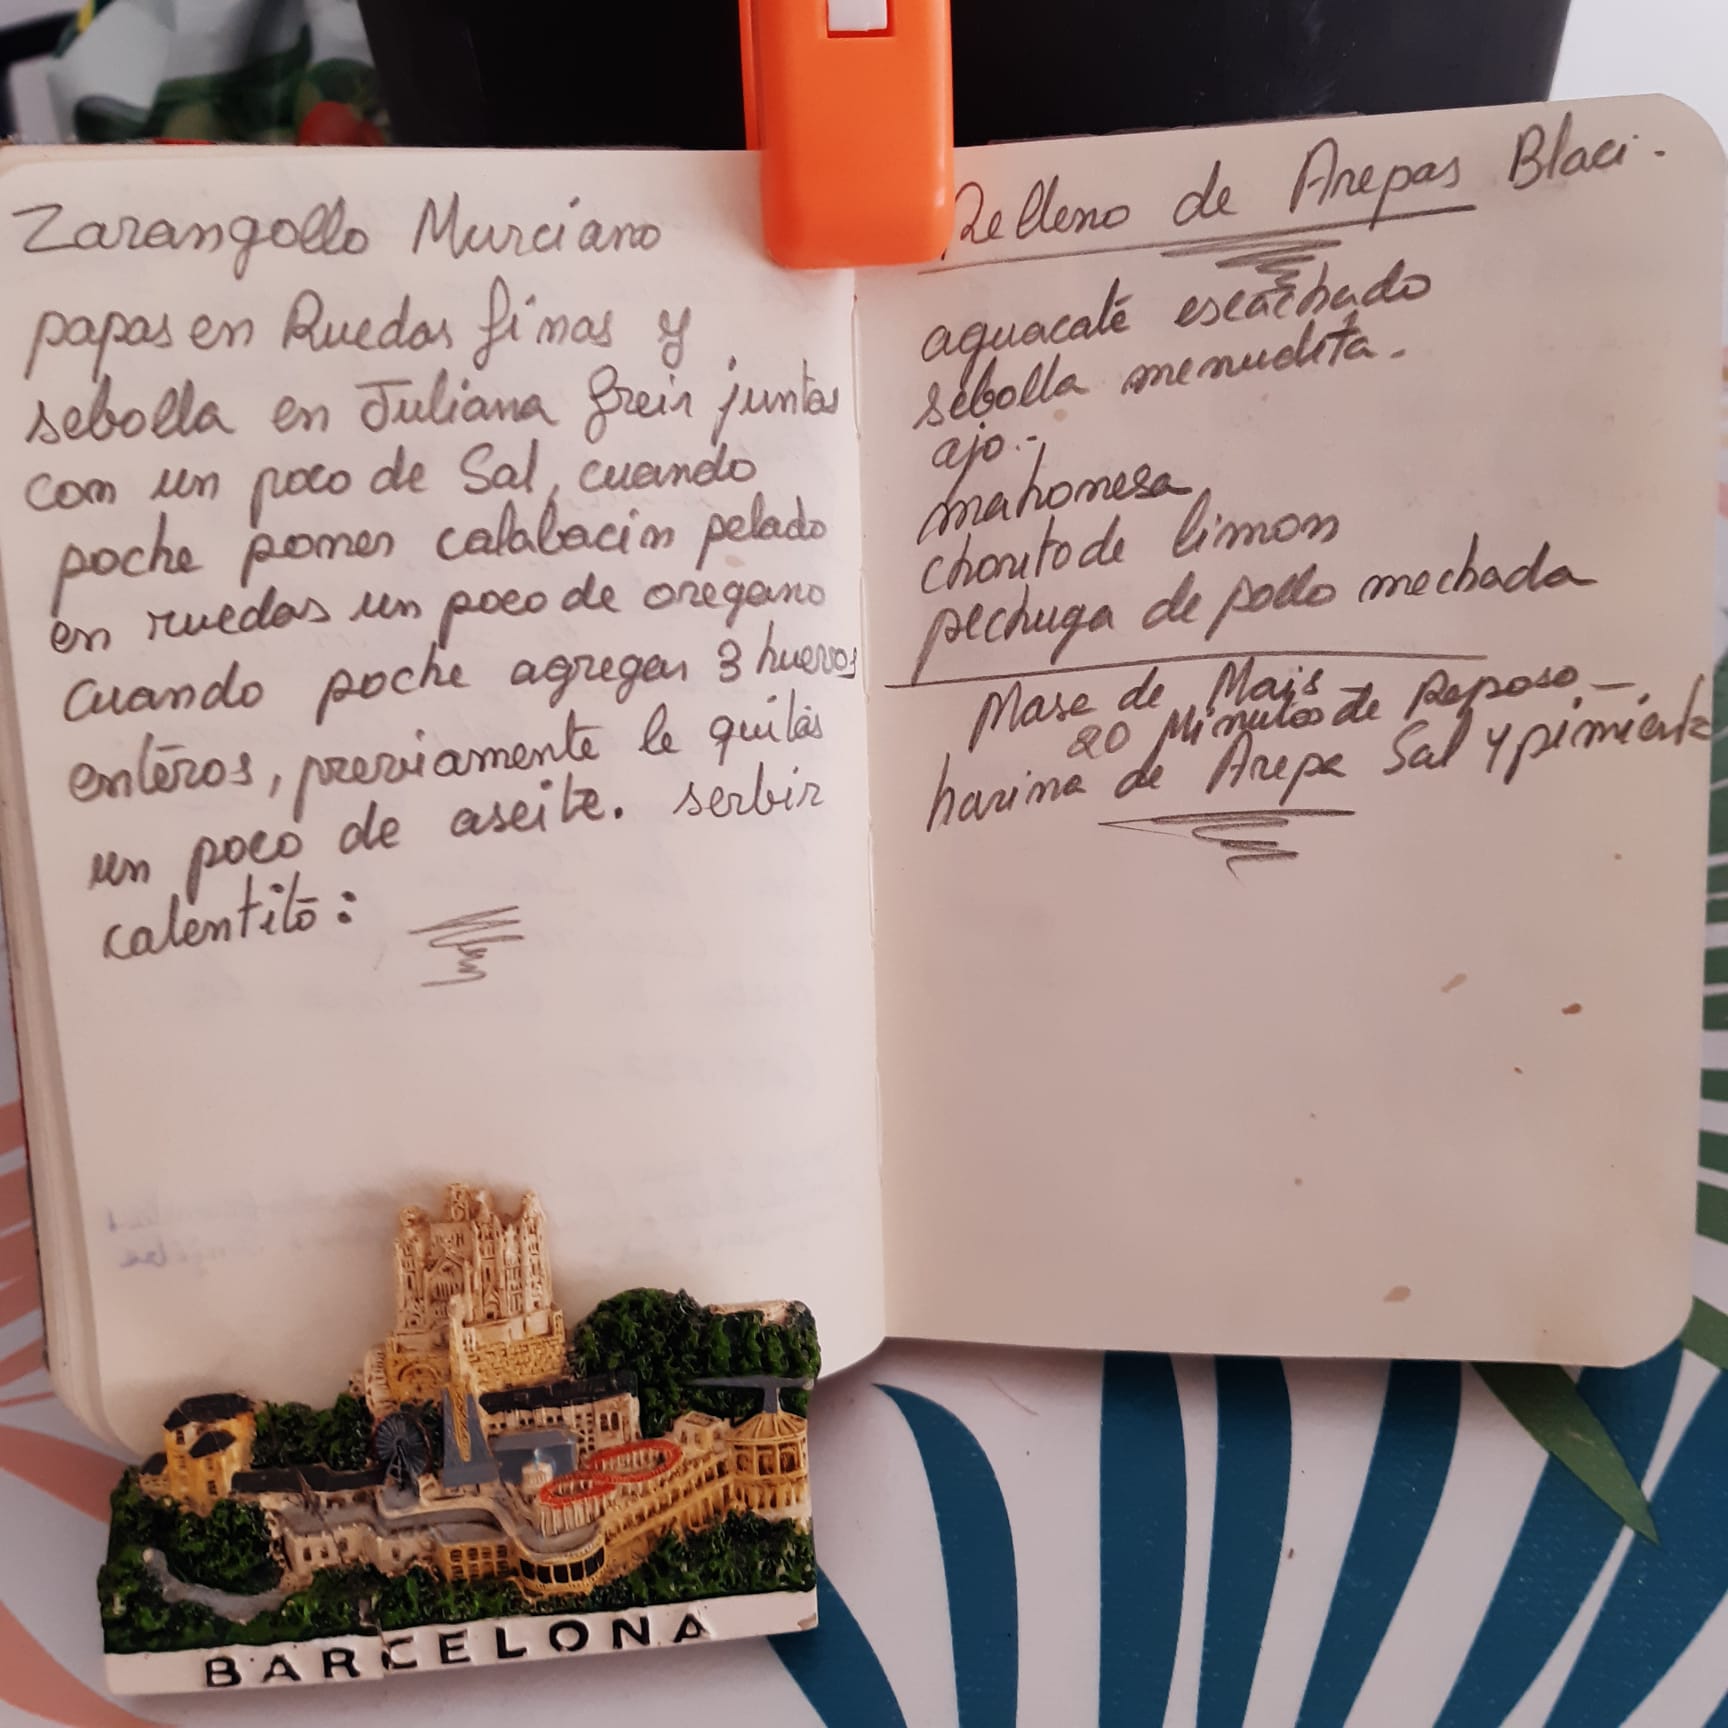 Zarangollo Murciano
papas en Ruedas finas y
sebolla en Juliana freir juntas
con un poco de Sal, cuando
poche poner calabacin pelado
en ruedas un poco de oregano
cuando poche agregar 3 huevos
enteros, previamente le quitas
un poco de aseite. serbir
calentito:
Relleno de Arepas Blaci.
aguacate escachado
sebolla menudita.
ajo.-
mahonesa
chorito de limon
pechuga de pollo mechada
Masa de Mais
20 Minutos de Reposo
harina de Arepa Sal y pimienta
BARCELONA